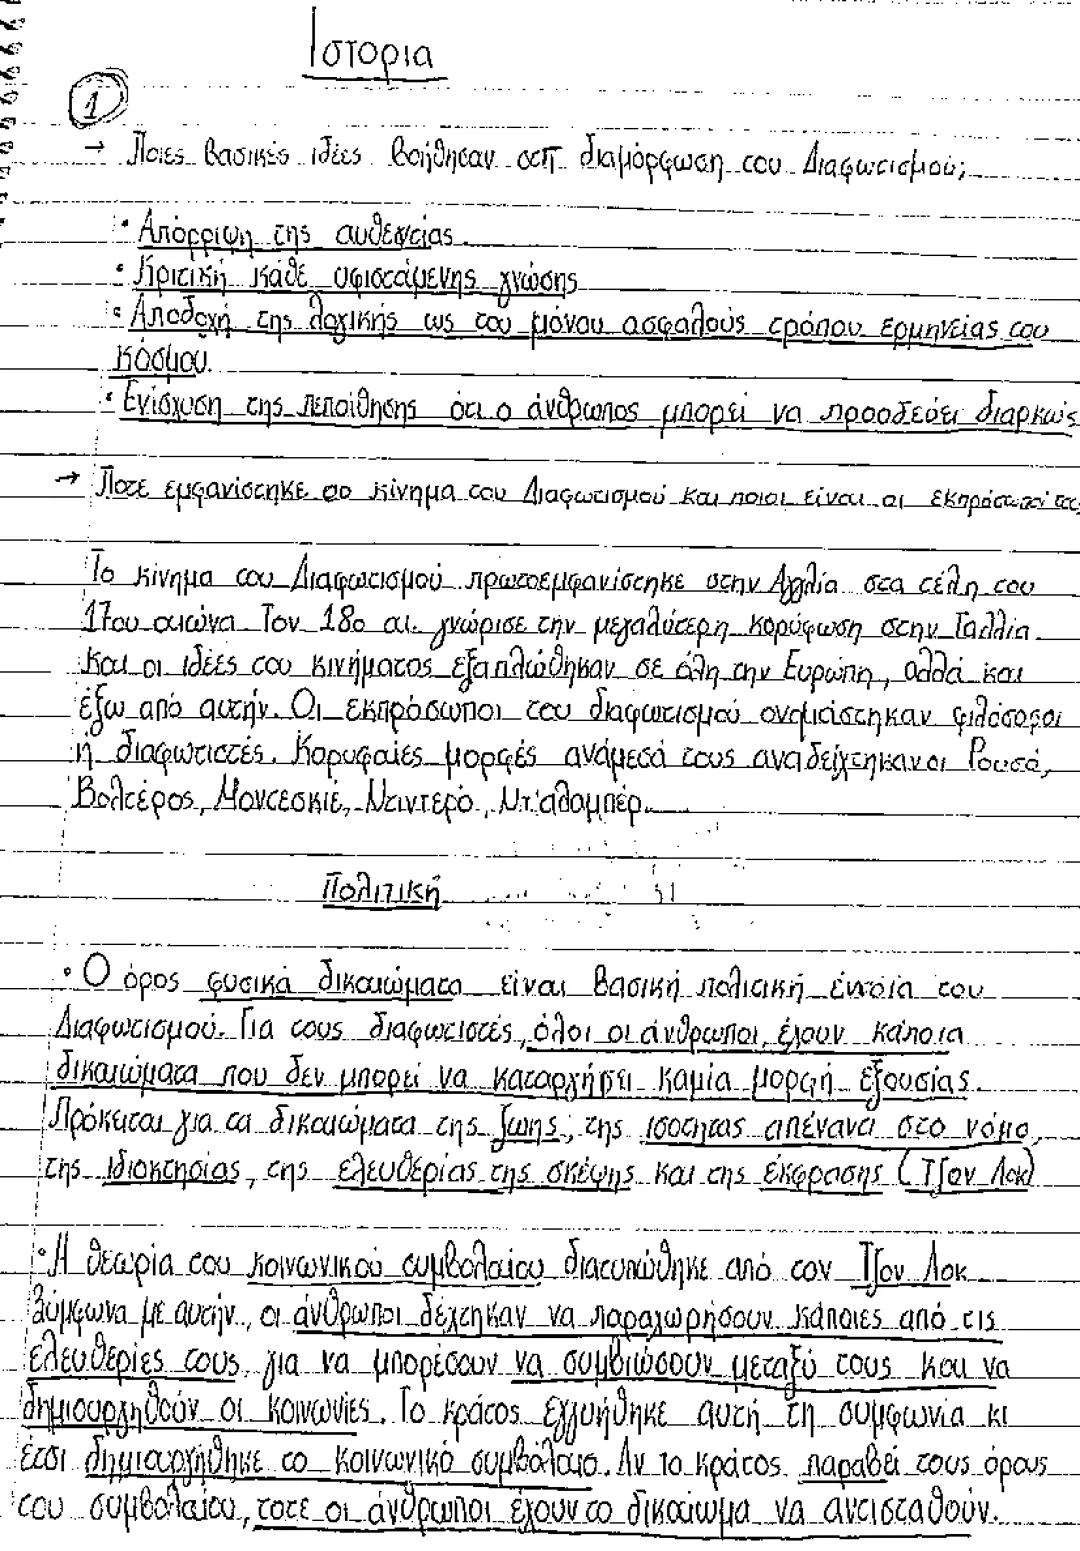 Ιστορία
1
→ Ποιες βασικές ιδέες βοήθησαν στη διαμόρφωση του Διαφωτισμού;
• Απόρριψη της αυθεντίας
• Κριτική κάθε υφιστάμενης γνώσης
• Αποδοχή της λογικής ως του μόνου ασφαλούς τρόπου ερμηνείας του
κόσμου.
• Ενίσχυση της πεποίθησης ότι ο άνθρωπος μπορεί να προοδεύει διαρκώς
→ Πότε εμφανίστηκε το κίνημα του Διαφωτισμού και ποιοι είναι οι εκπρόσωποί του;
Το κίνημα του Διαφωτισμού πρωτοεμφανίστηκε στην Αγγλία στα τέλη του
17ου αιώνα. Τον 18ο αι. γνώρισε την μεγαλύτερη κορύφωση στην Γαλλία
και οι ιδέες του κινήματος εξαπλώθηκαν σε όλη την Ευρώπη, αλλά και
έξω από αυτήν. Οι εκπρόσωποι του διαφωτισμού ονομάστηκαν φιλόσοφοι
ή διαφωτιστές. Κορυφαίες μορφές ανάμεσά τους αναδείχτηκαν οι Ρουσό,
Βολτέρος, Μοντεσκιέ, Ντιντερό, Ντ'αλαμπέρ.
Πολιτική
• Ο όρος φυσικά δικαιώματα είναι βασική πολιτική έννοια του
Διαφωτισμού. Για τους διαφωτιστές, όλοι οι άνθρωποι έχουν κάποια
δικαιώματα που δεν μπορεί να καταργήσει καμία μορφή εξουσίας.
Πρόκειται για τα δικαιώματα της ζωής, της ισότητας απέναντι στο νόμο,
της ιδιοκτησίας, της ελευθερίας της σκέψης και της έκφρασης (Τζον Λοκ)
• Η θεωρία του κοινωνικού συμβολαίου διατυπώθηκε από τον Τζον Λοκ
Σύμφωνα με αυτήν, οι άνθρωποι δέχτηκαν να παραχωρήσουν κάποιες από τις
ελευθερίες τους για να μπορέσουν να συμβιώσουν μεταξύ τους και να
δημιουργηθούν οι κοινωνίες. Το κράτος εγγυήθηκε αυτή τη συμφωνία κι
έτσι δημιουργήθηκε το κοινωνικό συμβόλαιο. Αν το κράτος παραβεί τους όρους
του συμβολαίου, τότε οι άνθρωποι έχουν το δικαίωμα να αντισταθούν.